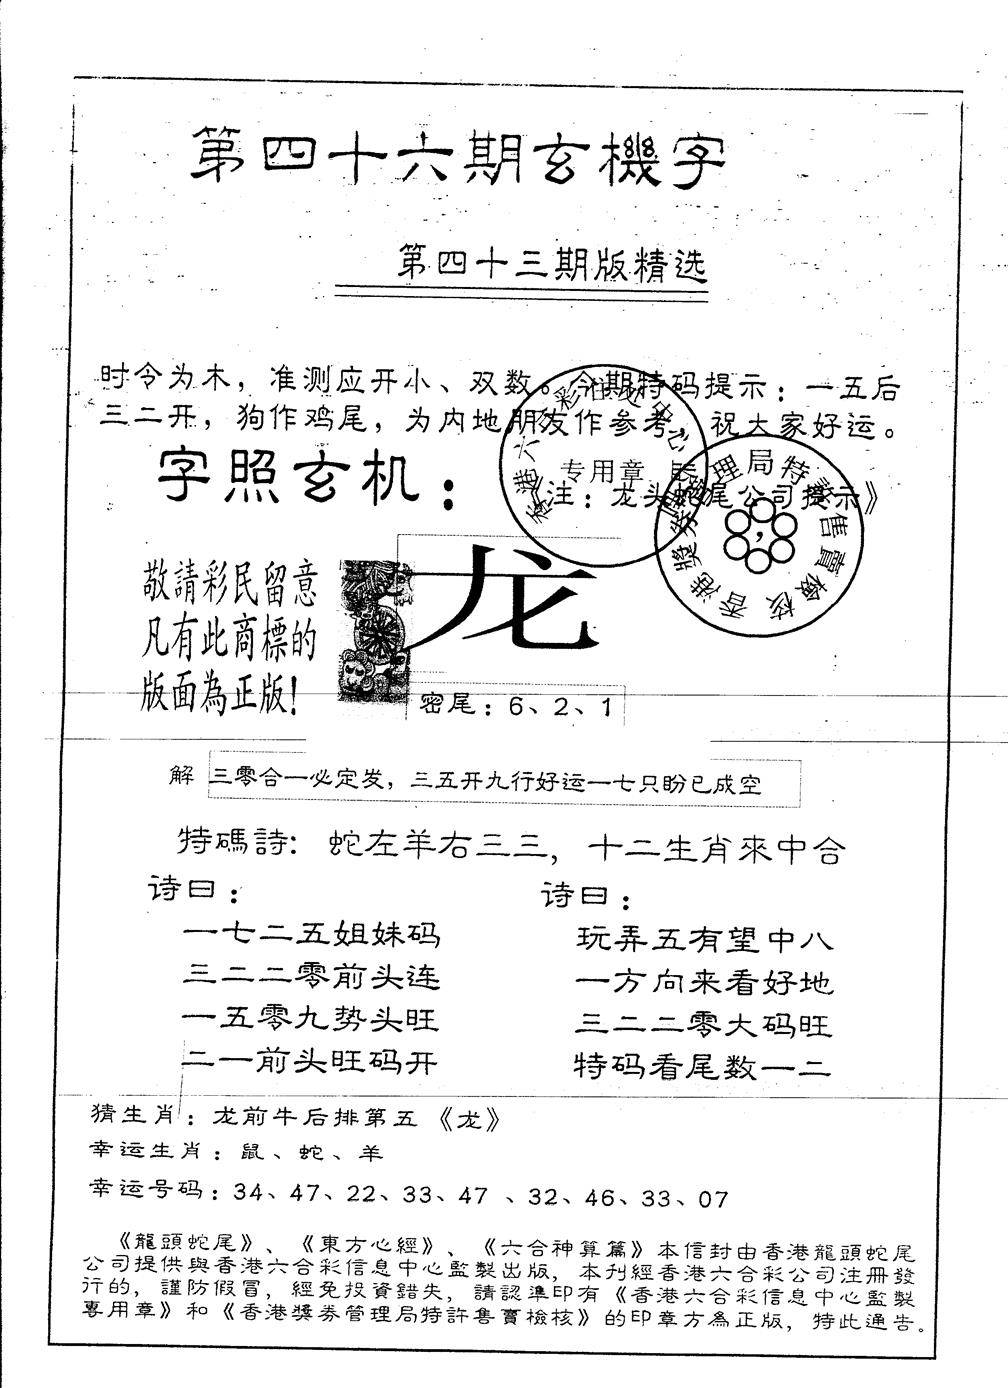 第四十六期玄機字
第四十三期版精选
时令为木，准测应开小、双数。今期特码提示：一五后
三二开，狗作鸡尾，为内地朋友作参考，祝大家好运。
字照玄机：
《注：龙头蛇尾公司提示》
专用章
龙
敬請彩民留意
凡有此商標的
版面為正版！
密尾：6、2、1
解 三零合一必定发，三五开九行好运一七只盼已成空
特碼詩：蛇左羊右三三，十二生肖來中合
诗曰：
一七二五姐妹码
三二二零前头连
一五零九势头旺
二一前头旺码开
诗曰：
玩弄五有望中八
一方向来看好地
三二二零大码旺
特码看尾数一二
猜生肖：龙前牛后排第五《龙》
幸运生肖：鼠、蛇、羊
幸运号码：34、47、22、33、47 、32、46、33、07
《龍頭蛇尾》、《東方心經》、《六合神算篇》本信封由香港龍頭蛇尾
公司提供與香港六合彩信息中心監製出版，本刊經香港六合彩公司注冊發
行的，謹防假冒，經免投資錯失，請認準印有《香港六合彩信息中心監製
專用章》和《香港獎券管理局特許售賣檢核》的印章方為正版，特此通告。